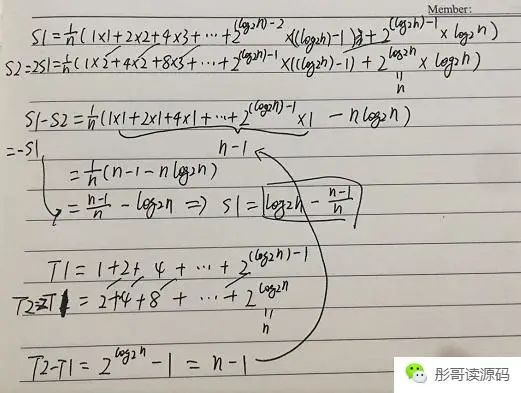 Member:
S1=1/n(1×1+2×2+4×3+⋯+2^((log2n)-2)×((log2n)-1)+2^((log2n)-1)×log2n)
S2=2S1=1/n(1×2+4×2+8×3+⋯+2^((log2n)-1)×((log2n)-1)+2^(log2n)×log2n)
‖
n
S1-S2=1/n(1×1+2×1+4×1+⋯+2^((log2n)-1)×1-nlog2n)
=-S1
n-1
=1/n(n-1-nlog2n)
=(n-1)/n-log2n⇒S1=log2n-(n-1)/n
T1=1+2+4+⋯+2^((log2n)-1)
T2=2T1=2+4+8+⋯+2^(log2n)
‖
n
T2-T1=2^(log2n)-1=n-1
彤哥读源码